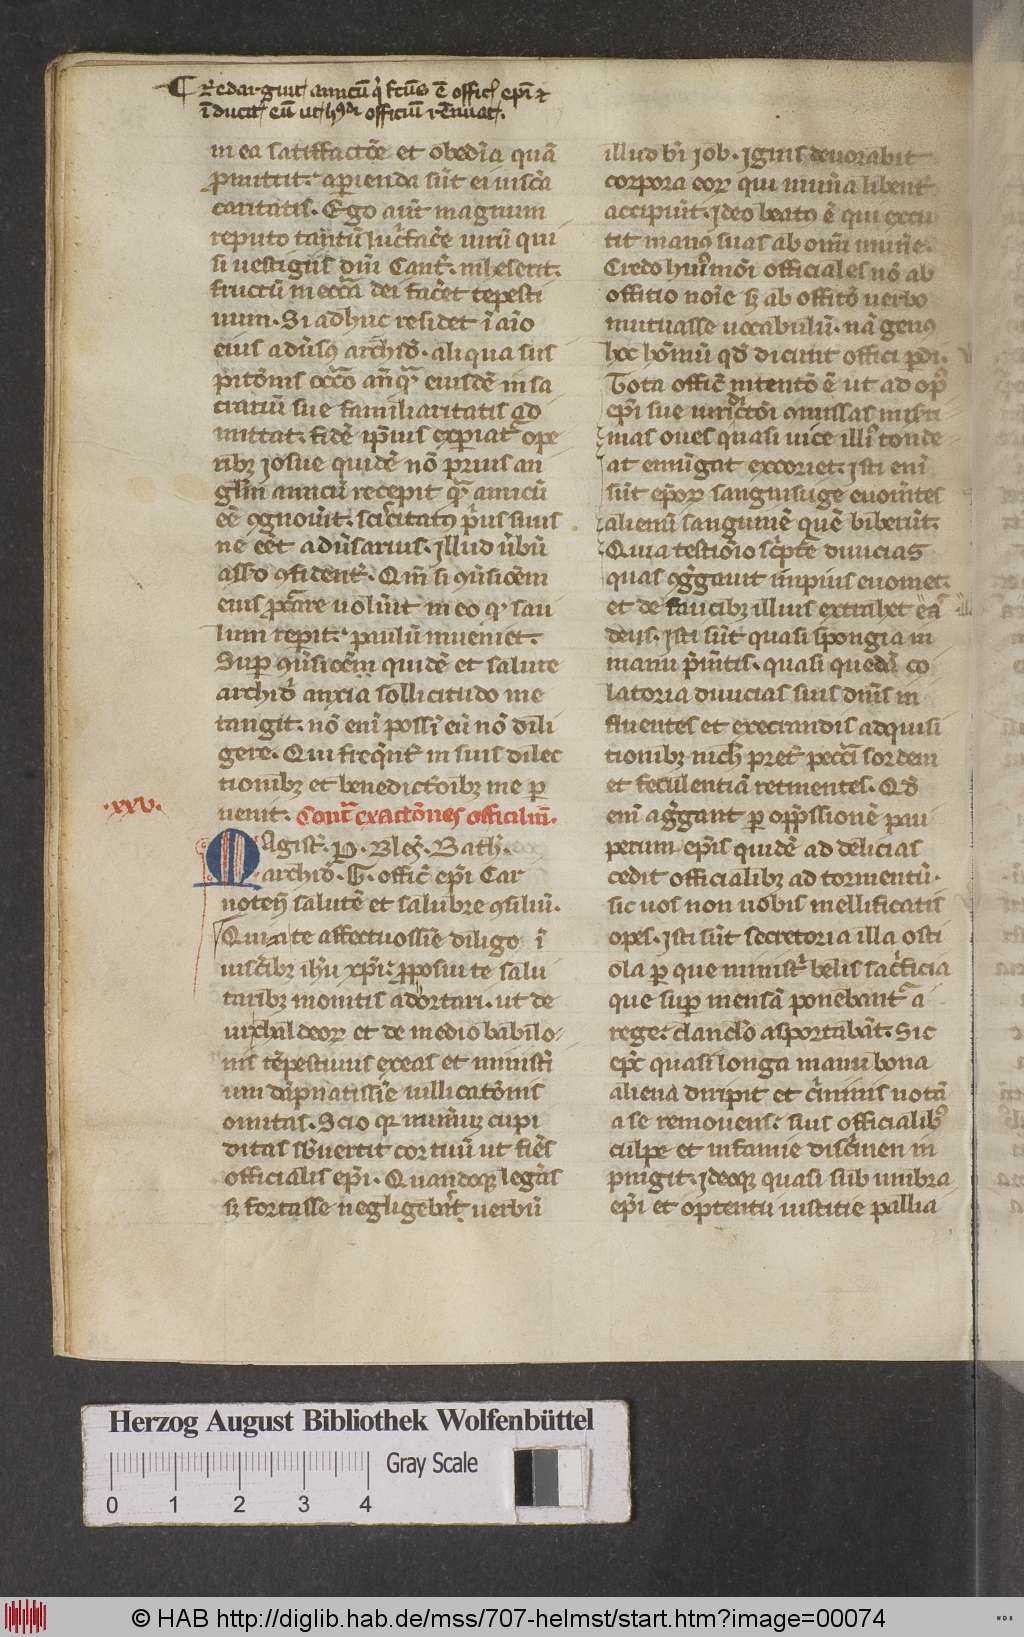 Redarguit amicū qͥ fcūs ē offici͛ epī ⁊
īducit eū ut hꝰdi officiū renuat.
in ea satiffactōe et obedīa quā
ꝓmittit. aperienda sūt ei uiscͤa
caritatis. Ego aūt magnum
reputo tantū lucͥfacͤe uirū qui
si uestigiis dn̄i Cant. inheserit.
fructū in ecc̄a dei facͤet tēpesti
uum. Si adhuc residet ī aīo
eius adūsꝰ archid̄. aliqua sus
pitōnis occͣo anͣqͣ eiusdē in sa
crariū sue familiaritatis ad
mittat. fidē ipīus expiatͬ ope
ribꝫ iosue quidē nō prius an
glm̄ amicū recepit qͣ amicū
eē ꝯgnouit. scicitatꝰ pͥus suus
ne eēt adūsarius. illud ūbū
ass'o ꝯfident͛. Qm̄ si ꝯūsioēm
eius pcͣre uolūit in eo qͥ sau
lum repit. paulū inueniet.
Sup ꝯūsioēm quidē et salute
archid̄i anxia sollicitudo me
tangit. nō enī possū eū nō dili
gere. Qui freq̄nt͛ in suis dilec
tionibꝫ et benedictōibꝫ me p̄
uenit. Contͣ exactōnes officiliū.
.xxv.
Magist͛. P. Bles͛. Bath͛.
archid̄. G. offic̄ epī Car
noten̄ salutē et salubre ꝯsiliū.
Quia te affectuosīe diligo ī
uiscͤibꝫ ihū xpī. ꝓposui te salu
taribꝫ monitis adhortari. ut de
ur chaldeoꝝ et de medio babilo
nis tēpestiuus exeas et ministͥ
um dāpnatissīe uillicatōnis
omittas. Scio qr̄ munūꝫ cupi
ditas sb̄uertit cor tuū ut fiēs
officialis epī. Quandoqꝫ legeas
sꝫ fortasse negligebat̄ uerbū
illud bt̄i iob. ignis deuorabit
corpora eoꝝ qui munͤa libent͛
accipiūt. ideo beatꝰ ē qui excu
tit manꝰ suas ab omī munͤe.
Credo huiꝰmōi officiales nō ab
offitio noīe sꝫ ab offitō uerbo
mutuasse uocabulū. nā genꝰ
hoc homū qd̄ dicunt offici pdi.
Tota offic̄ intentō ē ut ad opꝰ
epī sue iurisdictōi cōmissas misͤri
mas oues quasi uice illiꝰ tonde
at emūgat excoriet. isti enī
sūt epōꝝ sanguisuge euomētes
alienū sanguinē quē biberūt.
Quia testiōio scͥpte diuicias
quas ꝯgͤgauit impius euomet.
et de faucibꝫ illius extrahet eas
deus. isti sūt quasi spongia in
manu pͥmētis. quasi quedā co
latoria diuicias suis dn̄is in
fluentes et execrandis adquisi
tionibꝫ nich̄ pret͛ peccī sordem
et feculentiā retinentes. Qd̄
enī agͤgant p oppͥssionē pau
perum epīs quidē ad delicias
cedit officialibꝫ ad tormentū.
sic uos non uobis mellificatis
opes. isti sūt secretoria illa osti
ola per que ministͥ belis sacͥficia
que sup mensā ponebant͛ a
rege. clanclō asportabāt. Sic
epc̄ quasi longa manu bona
aliena diripit et cͥminis notā
a se remouens. suis officialibꝰ
culpe et infamie discͥmen in
pingit. ideoqꝫ quasi sub umbra
epī et optentu iustitie pallia
Herzog August Bibliothek Wolfenbüttel
0 1 2 3 4
Gray Scale
© HAB http://diglib.hab.de/mss/707-helmst/start.htm?image=00074